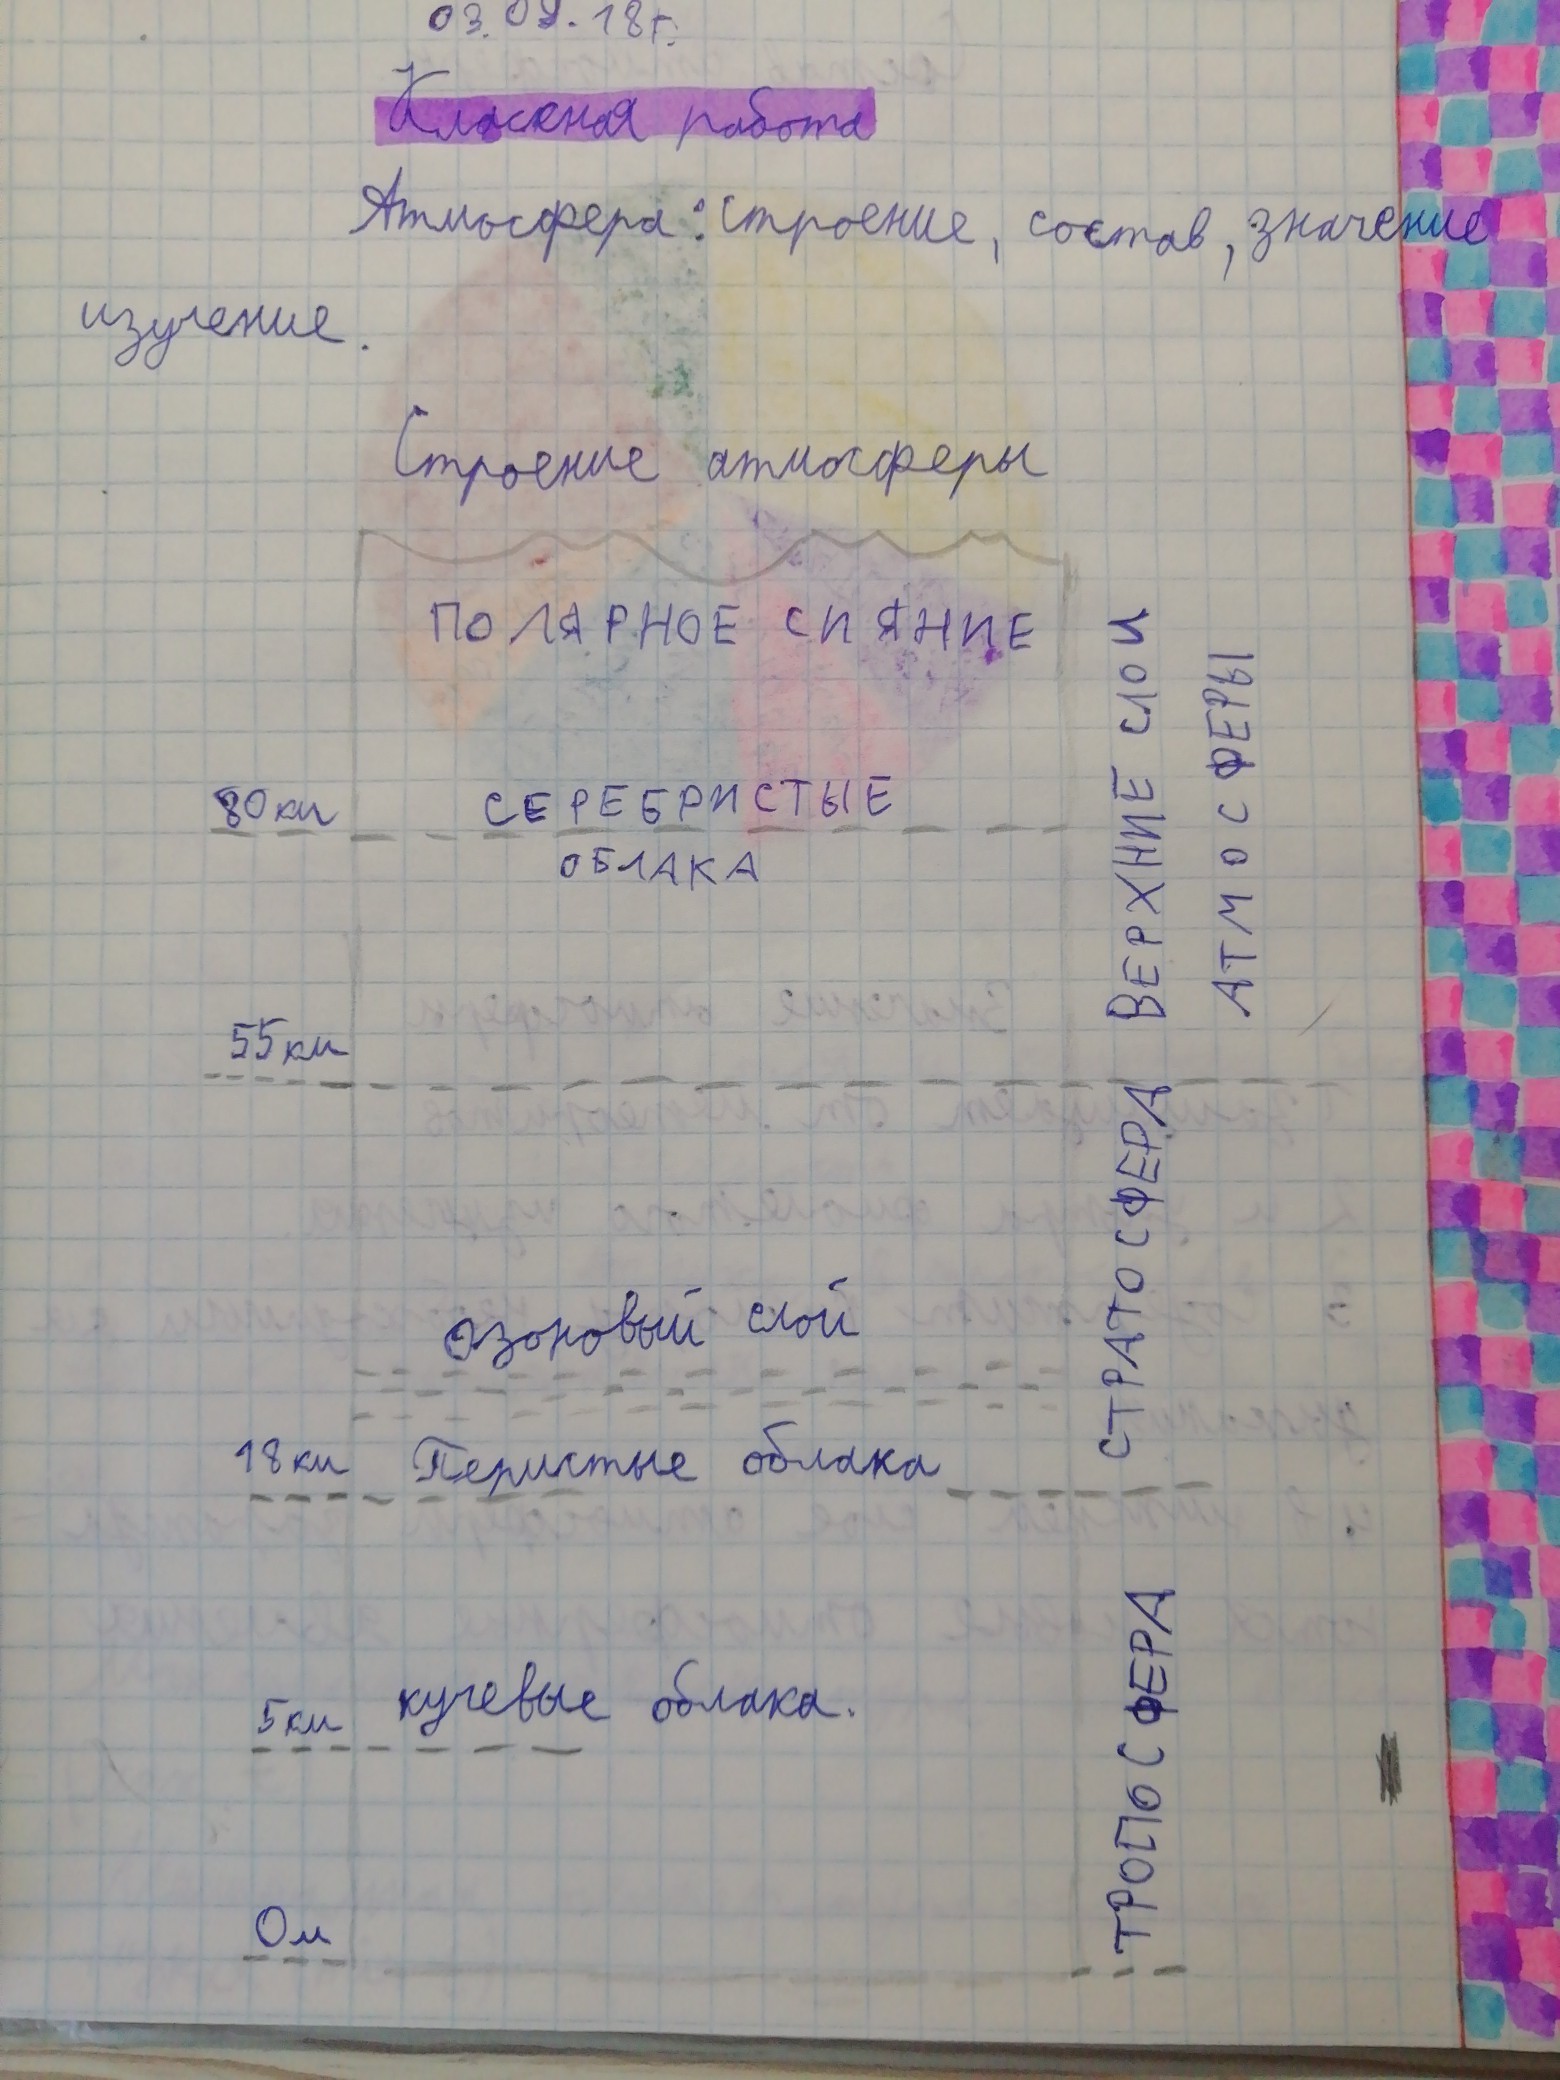 03.09.18г.
Класная работа
Атмосфера: строение, состав, значение
изучение.
Строение атмосферы
ПОЛЯРНОЕ СИЯНИЕ
80км СЕРЕБРИСТЫЕ
ОБЛАКА
ВЕРХНИЕ СЛОИ
АТМОСФЕРЫ
55км
СТРАТОСФЕРА
озоновый слой
18км Перистые облака
5км кучевые облака.
ТРОПОСФЕРА
0м